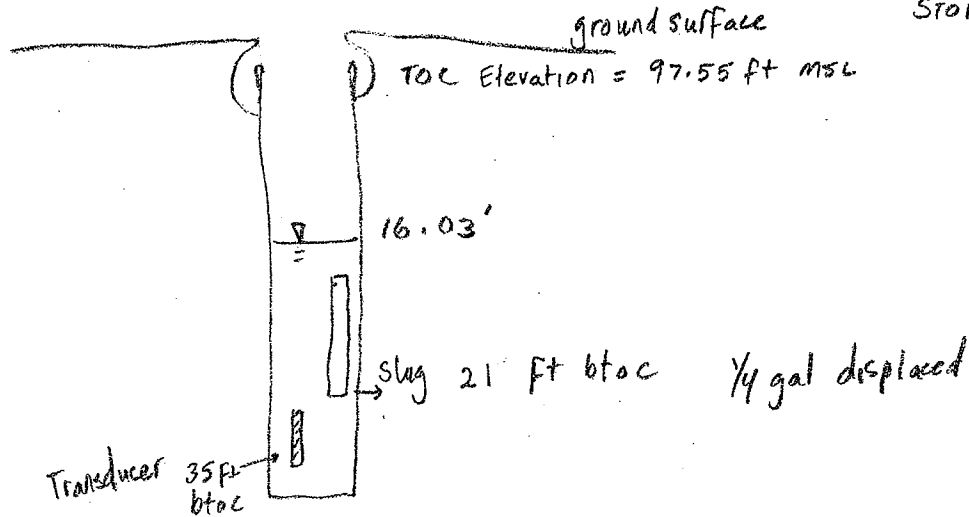 ground surface
TOC Elevation = 97.55 ft MSL
16.03'
Slug 21 ft btoc 1/4 gal displaced
Transducer 35 ft
btoc